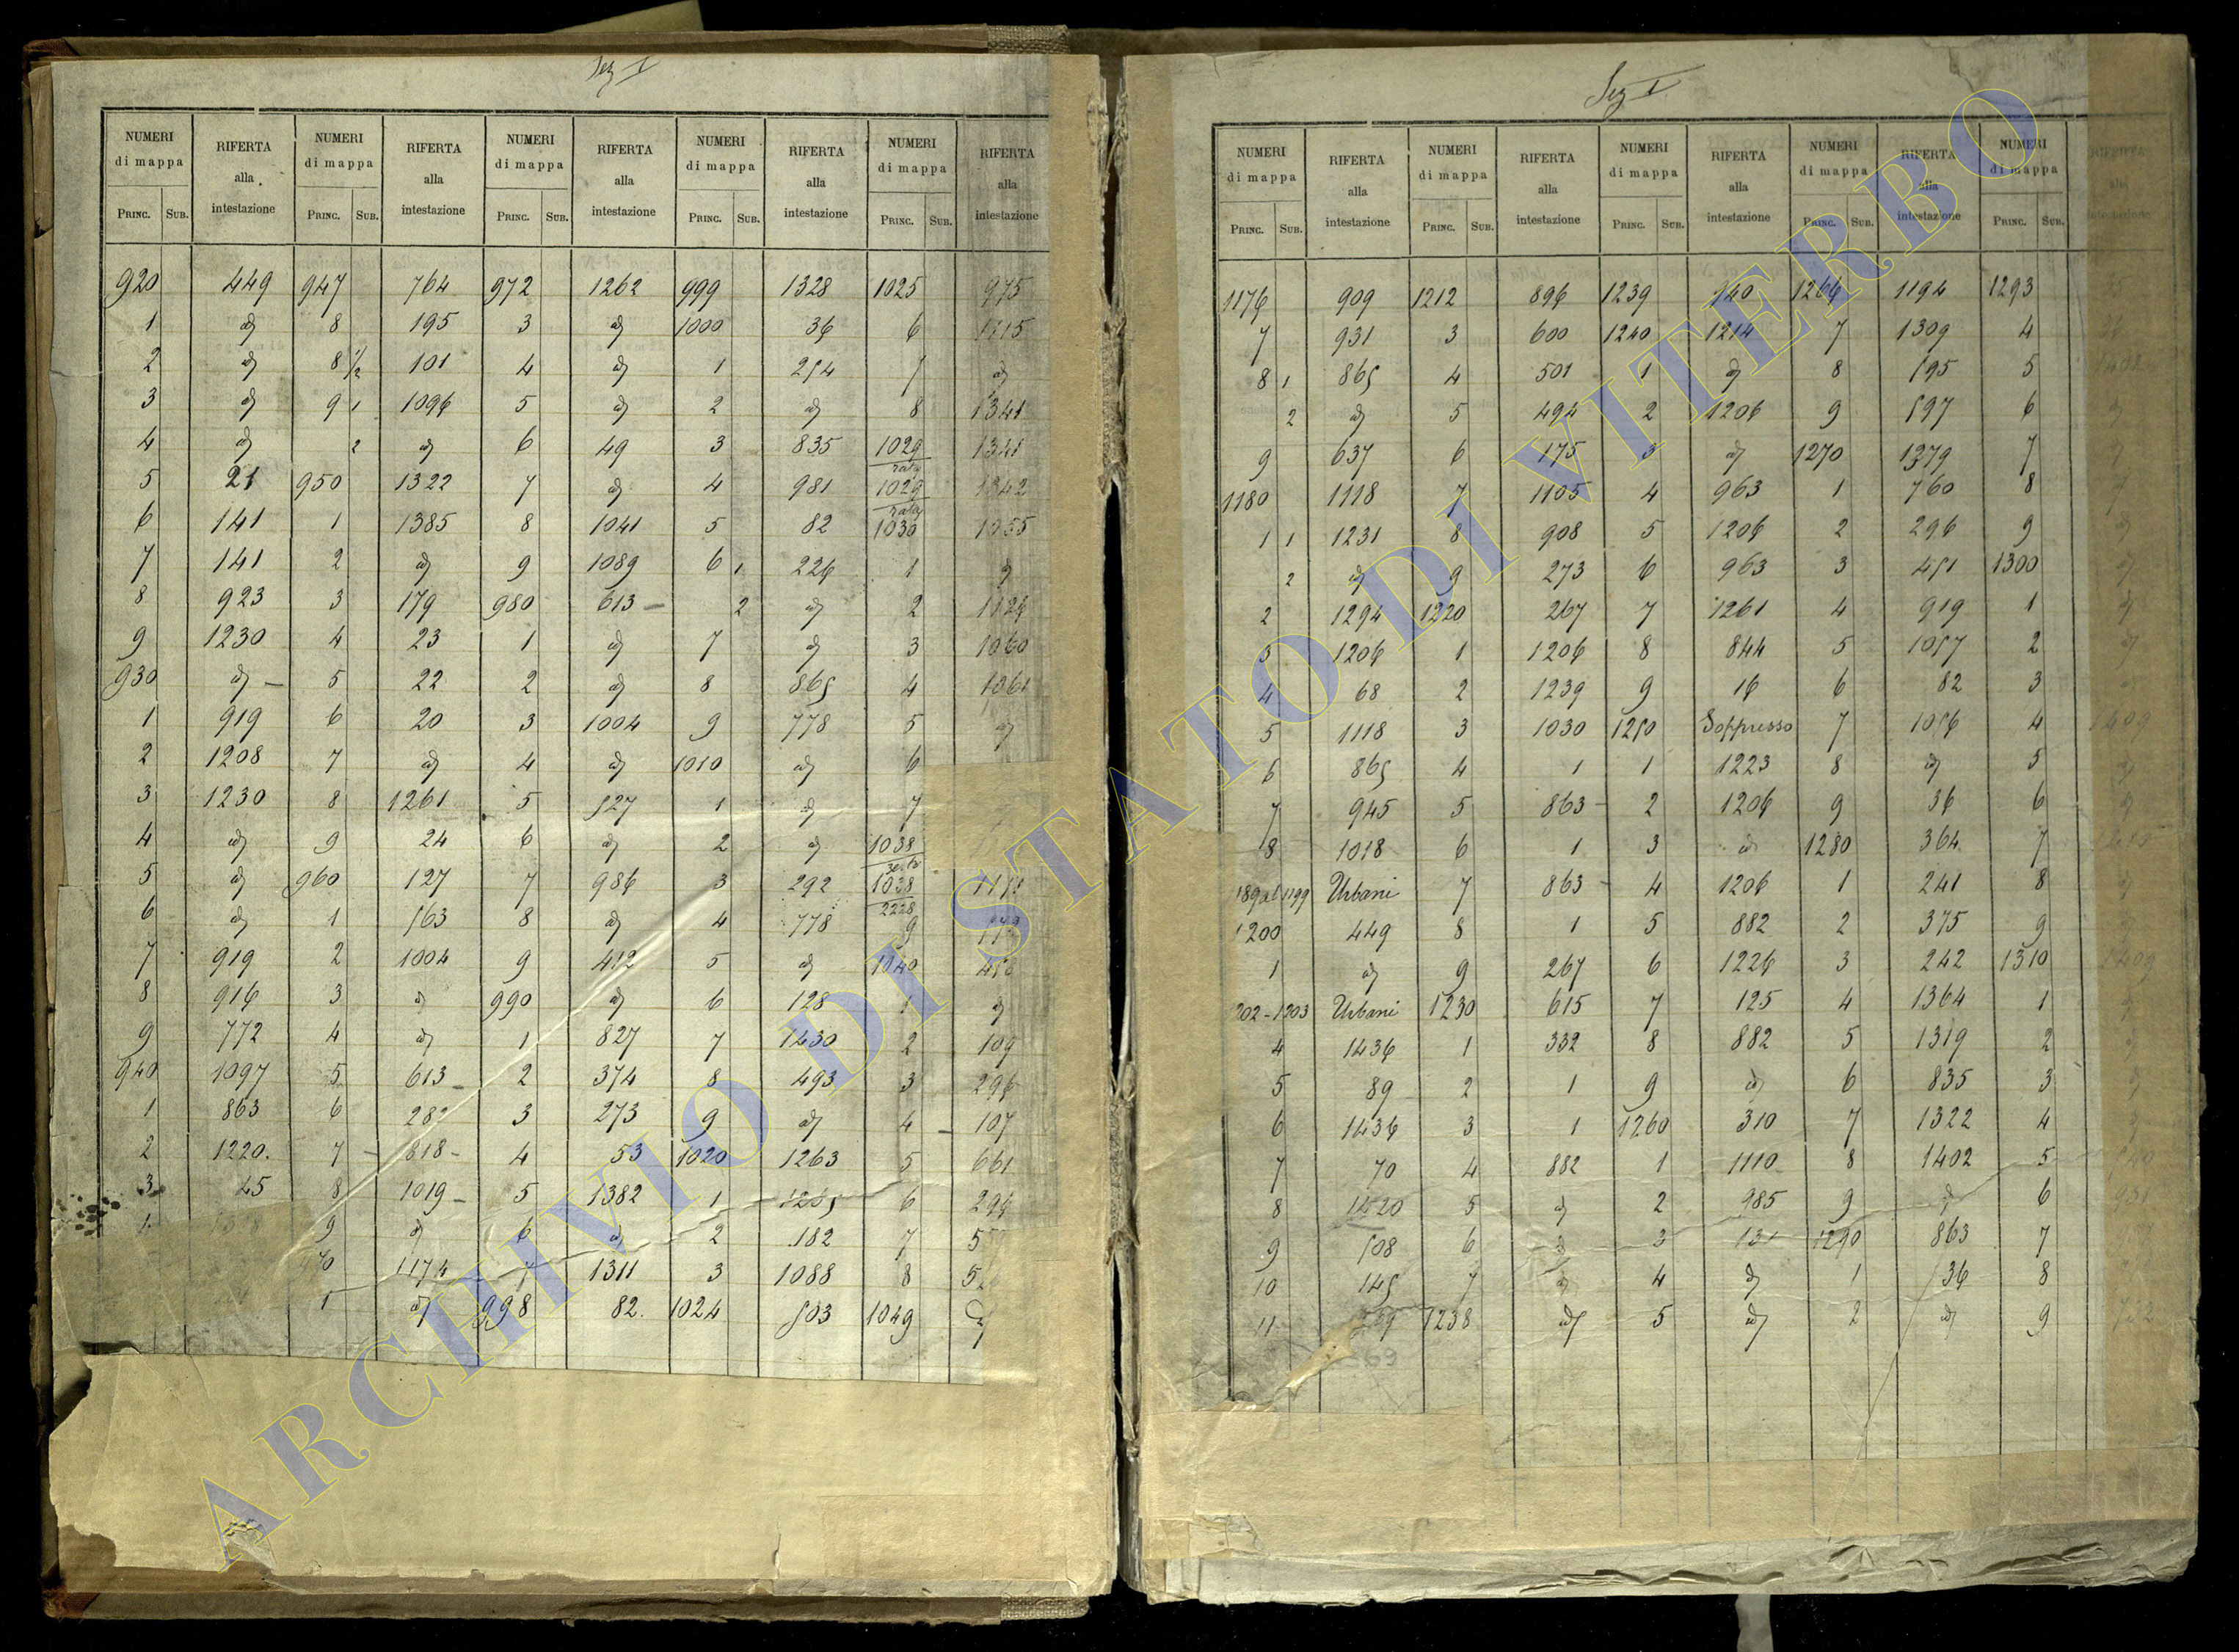 Sez I
NUMERI di mappa RIFERTA alla intestazione NUMERI di mappa RIFERTA alla intestazione NUMERI di mappa RIFERTA alla intestazione NUMERI di mappa RIFERTA alla intestazione NUMERI di mappa RIFERTA alla intestazione
PRINC. SUB. PRINC. SUB. PRINC. SUB. PRINC. SUB. PRINC. SUB.
920 449 947 764 972 1262 999 1328 1025 975
1 id 8 195 3 id 1000 36 6 1215
2 id 8 1/2 101 4 id 1 254 7 id
3 id 9 1 1096 5 id 2 id 8 1341
4 id 2 id 6 49 3 835 1029 rata 1341
5 21 950 1322 7 id 4 981 1029 rata 1342
6 141 1 1385 8 1041 5 82 1030 1355
7 141 2 id 9 1089 6 1 226 1 id
8 923 3 179 980 613 2 id 2 1126
9 1230 4 23 1 id 7 id 3 1060
930 id 5 22 2 id 8 865 4 1061
1 919 6 20 3 1004 9 778 5 id
2 1208 7 id 4 id 1010 id 6
3 1230 8 1261 5 527 1 id 7
4 id 9 24 6 id 2 id 1038
5 id 960 127 7 986 3 292 1038 2228
6 id 1 563 8 id 4 778 9
7 919 2 1004 9 412 5 id 1040
8 916 3 id 990 id 6 128 1 id
9 772 4 id 1 827 7 1430 2 109
940 1097 5 613 2 374 8 493 3 296
1 863 6 282 3 273 9 id 4 107
2 1220 7 818 4 53 1020 1263 5 661
3 45 8 1019 5 1382 1 1265 6 296
9 id 6 id 2 182 7
1174 7 1311 3 1088 8
1 id 998 82 1024 503 1049 id
Sez I
NUMERI di mappa RIFERTA alla intestazione NUMERI di mappa RIFERTA alla intestazione NUMERI di mappa RIFERTA alla intestazione NUMERI di mappa RIFERTA alla intestazione NUMERI di mappa RIFERTA alla intestazione
PRINC. SUB. PRINC. SUB. PRINC. SUB. PRINC. SUB. PRINC. SUB.
1176 909 1212 896 1239 140 1266 1194 1293
7 931 3 600 1240 1214 7 1309 4
8 1 865 4 501 1 id 8 595 5
2 id 5 494 2 1206 9 597 6
9 637 6 175 3 id 1270 1379 7
1180 1118 7 1105 4 963 1 760 8
1 1 1231 8 908 5 1206 2 296 9
2 id 9 273 6 963 3 451 1300
2 1294 1220 267 7 1261 4 919 1
3 1206 1 1206 8 844 5 1057 2
4 68 2 1239 9 16 6 82 3
5 1118 3 1030 1250 Soppresso 7 1056 4 1409
6 865 4 1 1 1223 8 id 5
7 945 5 863 2 1206 9 36 6
8 1018 6 1 3 id 1280 364 7
189 al 1199 Urbani 7 863 4 1206 1 241 8
1200 449 8 1 5 882 2 375 9
1 id 9 267 6 1226 3 242 1310 1409
202-1203 Urbani 1230 615 7 125 4 1364 1
4 1436 1 332 8 882 5 1319 2
5 89 2 1 9 id 6 835 3
6 1436 3 1 1260 310 7 1322 4
7 70 4 882 1 1110 8 1402 5
8 1420 5 id 2 985 9 id 6
9 508 6 id 3 131 1290 863 7
10 145 7 id 4 id 1 36 8
11 1238 id 5 id 2 id 9
ARCHIVIO DI STATO DI VITERBO